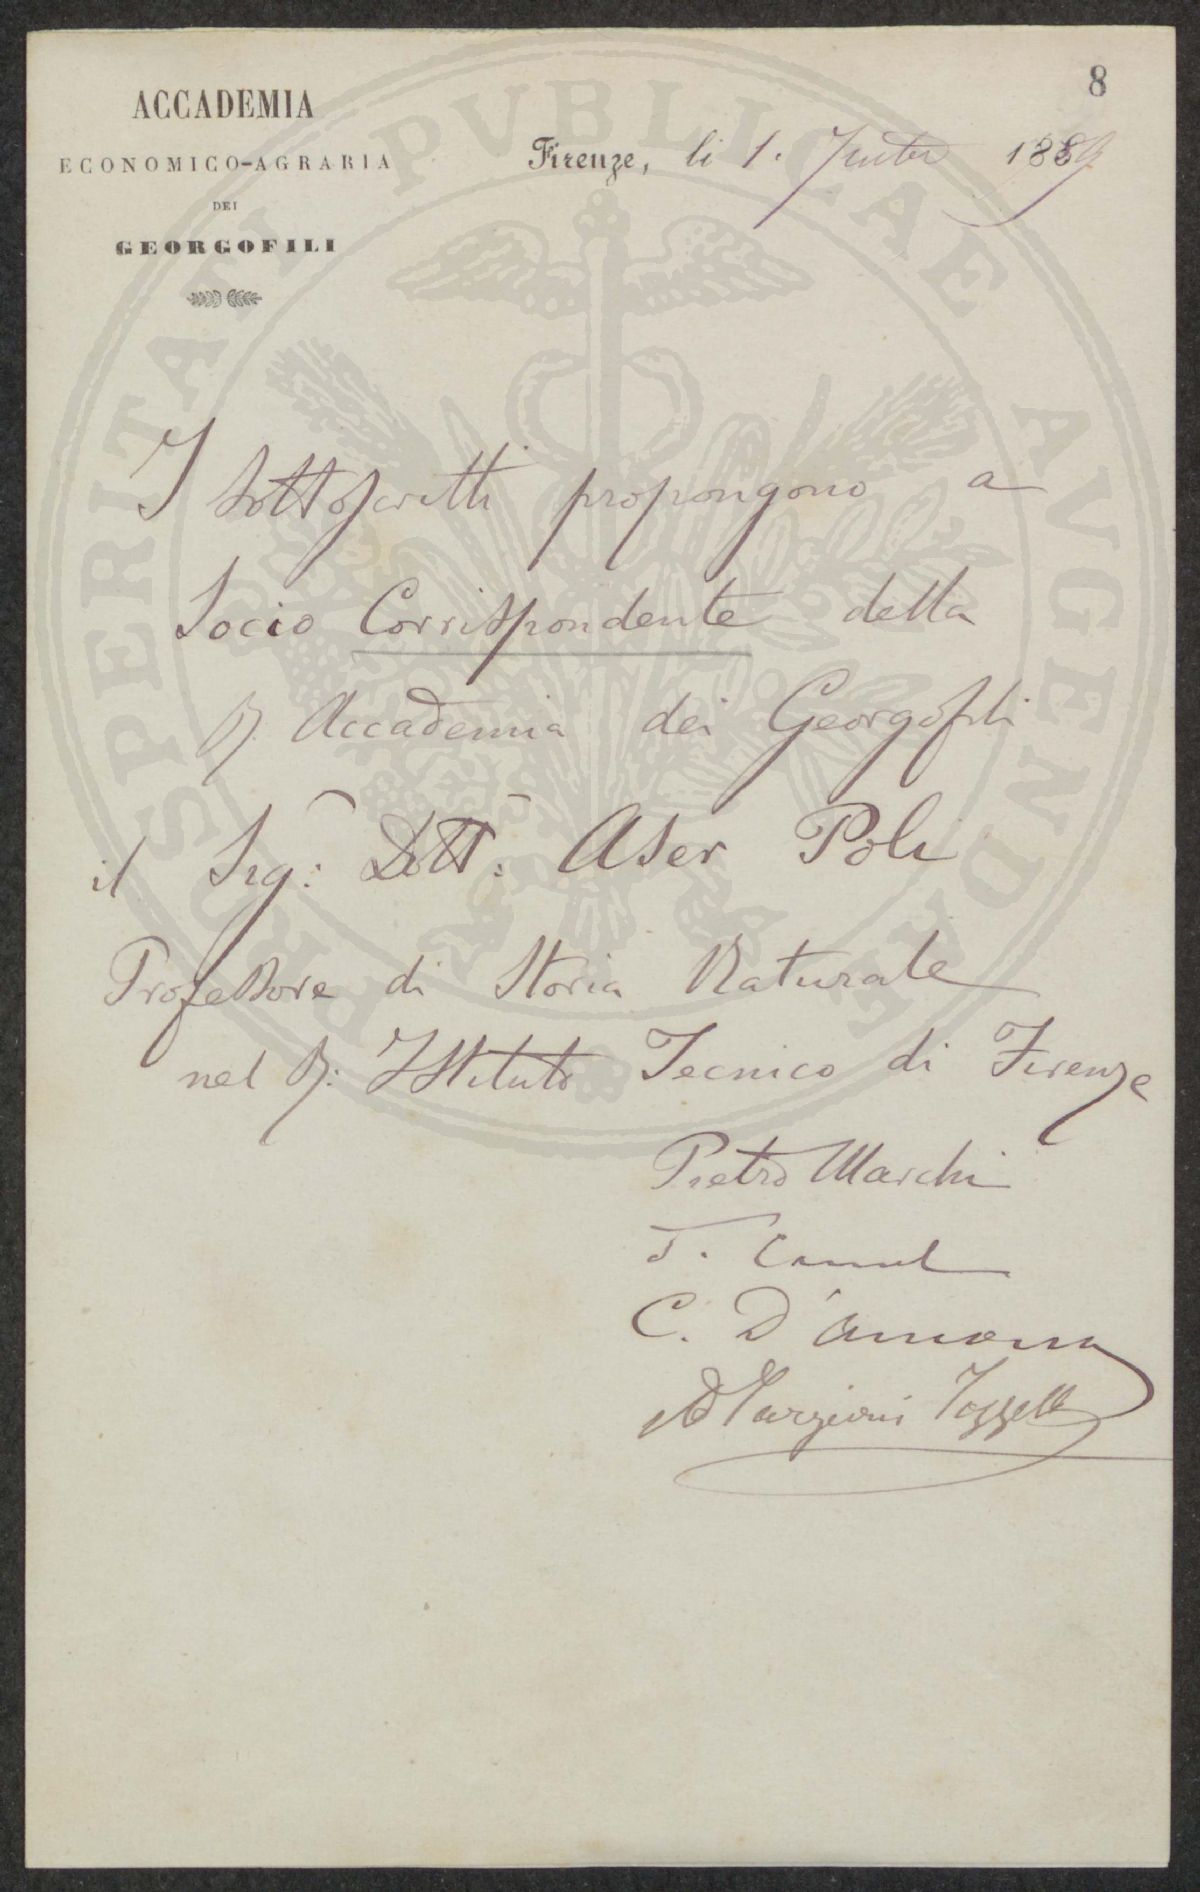 8
ACCADEMIA
ECONOMICO-AGRARIA
DEI
GEORGOFILI
Firenze, li 1. 1889
I sottoscritti propongono a
Socio Corrispondente della
R. Accademia dei Georgofili
il Sig: Dott: Aser Poli
Professore di Storia Naturale
nel R: Istituto Tecnico di Firenze
Pietro Marchi
T. Caruel
C. D'Ancona
Ad Targioni Tozzetti
PROSPERITATI PVBLICAE AVGENDAE